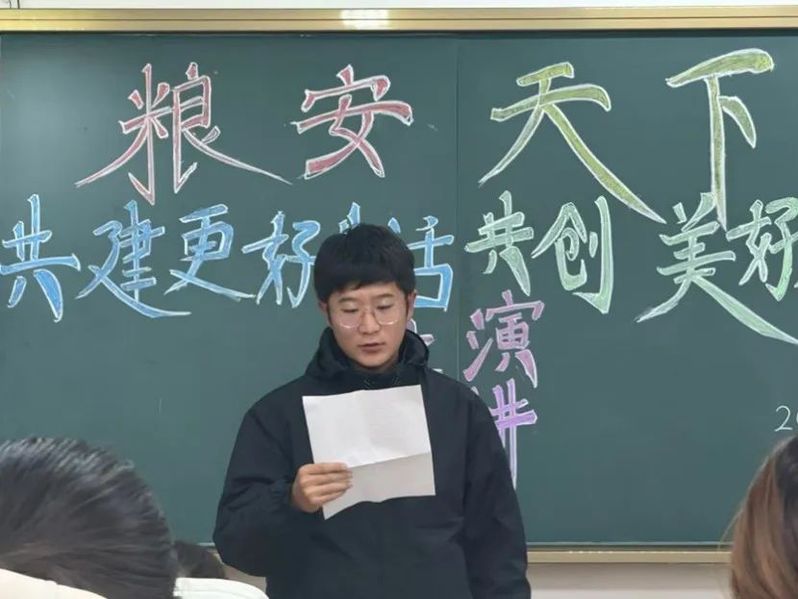 粮安天下
共建更好生活 共创美好
演讲